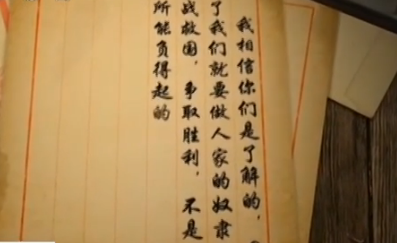 我相信你们是了解的，
了我们就要做人家的奴隶
战救国，争取胜利，不是
所能负得起的